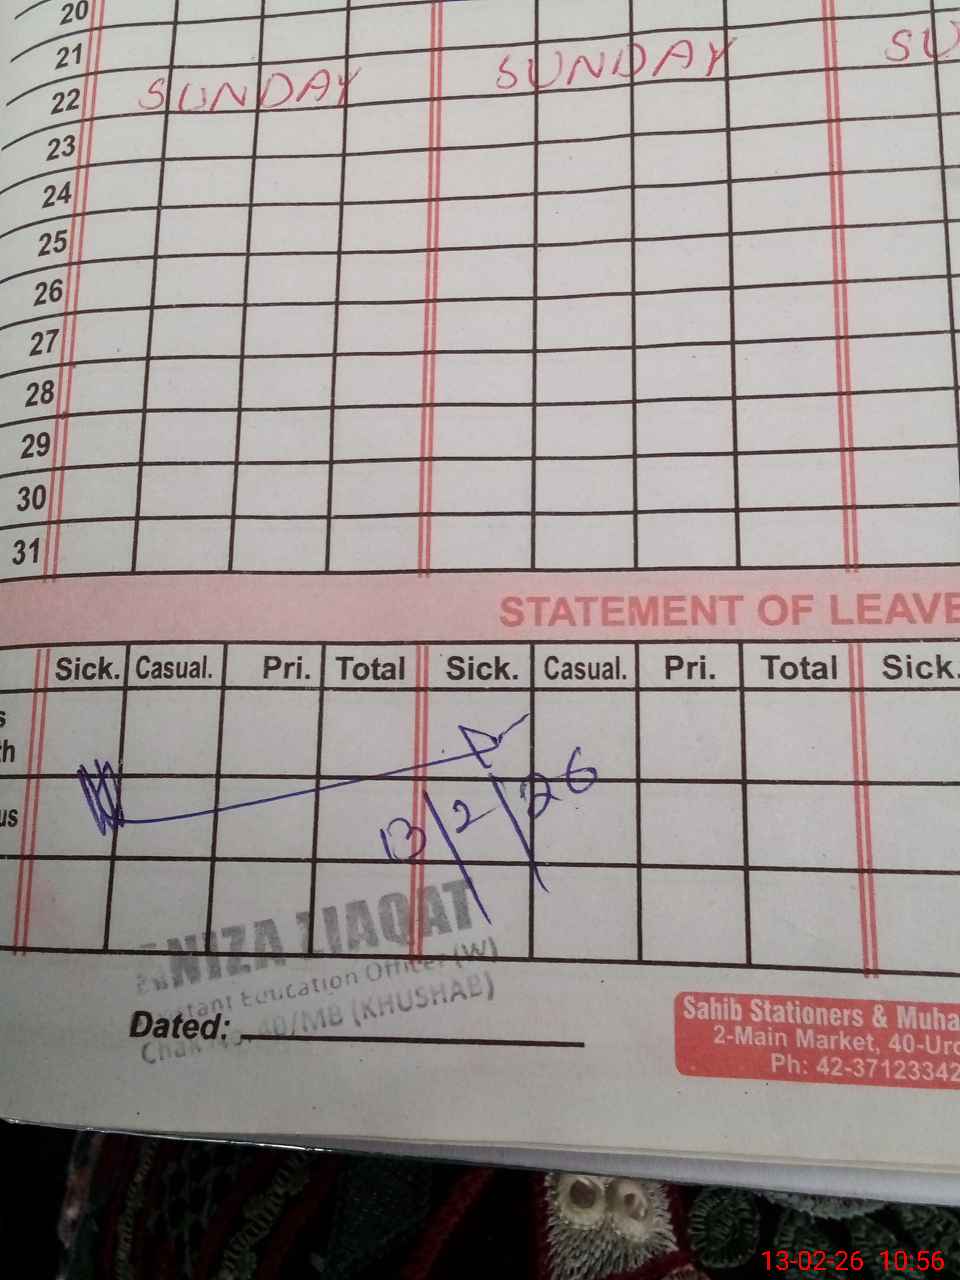 20
21
SUNDAY SU
22 SUNDAY
23
24
25
26
27
28
29
30
31
STATEMENT OF LEAVE
Sick. Casual. Pri. Total Sick. Casual. Pri. Total Sick.
13/2/26
NIZA LIAQAT
Education Officer (W)
40/MB (KHUSHAB)
Dated:
Sahib Stationers & Muha
2-Main Market, 40-Urd
Ph: 42-37123342
13-02-26 10:56